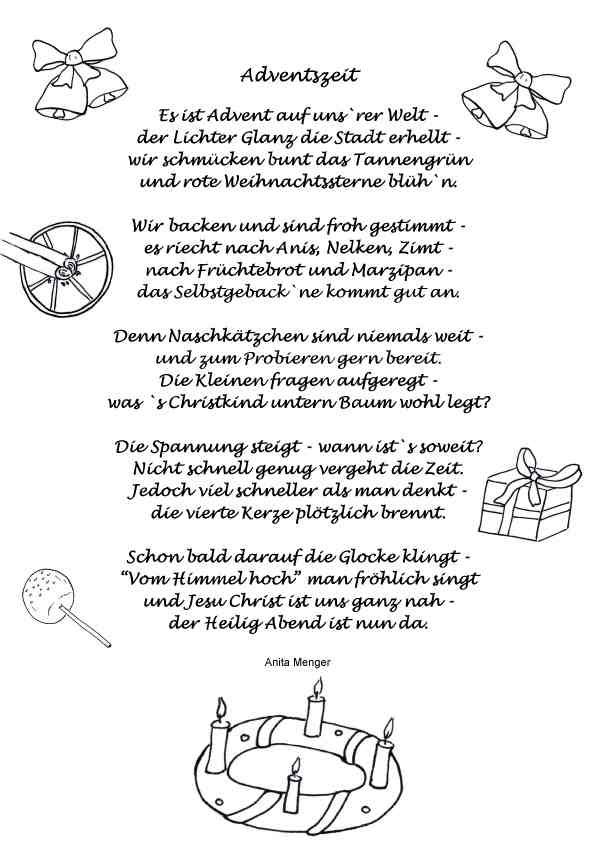 Adventszeit
Es ist Advent auf uns`rer Welt -
der Lichter Glanz die Stadt erhellt -
wir schmücken bunt das Tannengrün
und rote Weihnachtssterne blüh`n.
Wir backen und sind froh gestimmt -
es riecht nach Anis, Nelken, Zimt -
nach Früchtebrot und Marzipan -
das Selbstgeback`ne kommt gut an.
Denn Naschkätzchen sind niemals weit -
und zum Probieren gern bereit.
Die Kleinen fragen aufgeregt -
was `s Christkind untern Baum wohl legt?
Die Spannung steigt - wann ist`s soweit?
Nicht schnell genug vergeht die Zeit.
Jedoch viel schneller als man denkt -
die vierte Kerze plötzlich brennt.
Schon bald darauf die Glocke klingt -
“Vom Himmel hoch” man fröhlich singt
und Jesu Christ ist uns ganz nah -
der Heilig Abend ist nun da.
Anita Menger